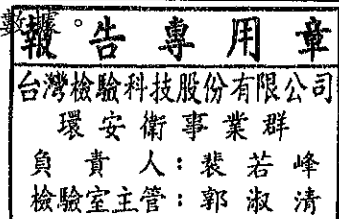 數據。
報告專用章
台灣檢驗科技股份有限公司
環安衛事業群
負責人：裴若峰
檢驗室主管：郭淑清